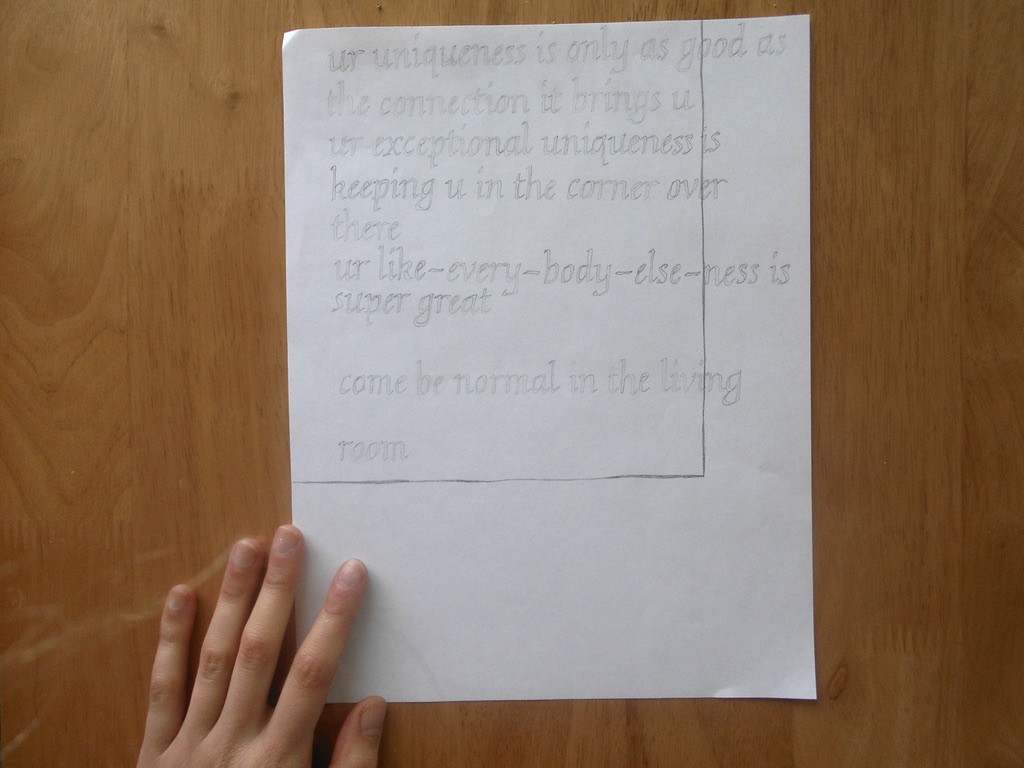 ur uniqueness is only as good as
the connection it brings u
ur exceptional uniqueness is
keeping u in the corner over
there
ur like-every-body-else-ness is
super great
come be normal in the living
room